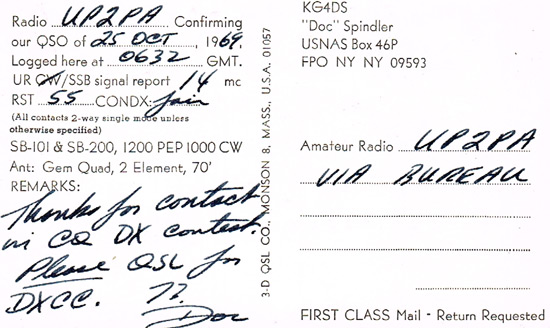 Radio UP2PA Confirming
our QSO of 25 OCT, 1969.
Logged here at 0632 GMT.
UR CW/SSB signal report 14 mc
RST 55 CONDX: fair
(All contacts 2-way single mode unless
otherwise specified)
SB-101 & SB-200, 1200 PEP 1000 CW
Ant: Gem Quad, 2 Element, 70'
REMARKS:
Thanks for contact
in CQ DX contest.
Please QSL for
DXCC. 73
Doc
3-D QSL CO., MONSON 8, MASS., U.S.A. 01057
KG4DS
"Doc" Spindler
USNAS Box 46P
FPO NY NY 09593
Amateur Radio UP2PA
VIA BUREAU
FIRST CLASS Mail - Return Requested